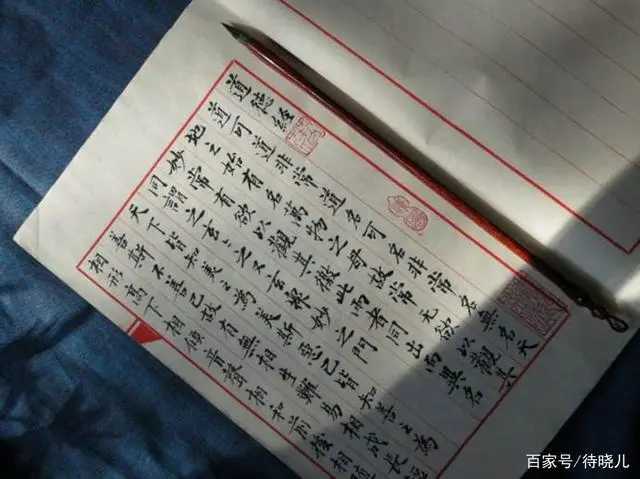 道德經
道可道非常道名可名非常名無名天
地之始有名萬物之母故常无欲以觀其
妙常有欲以觀其徼此兩者同出而異名
同謂之玄々之又玄衆妙之門
天下皆知美之為美斯惡已皆知善之為
善斯不善已故有無相生難易相成長短
相形高下相傾音聲相和前後相隨
百家号/待晓儿